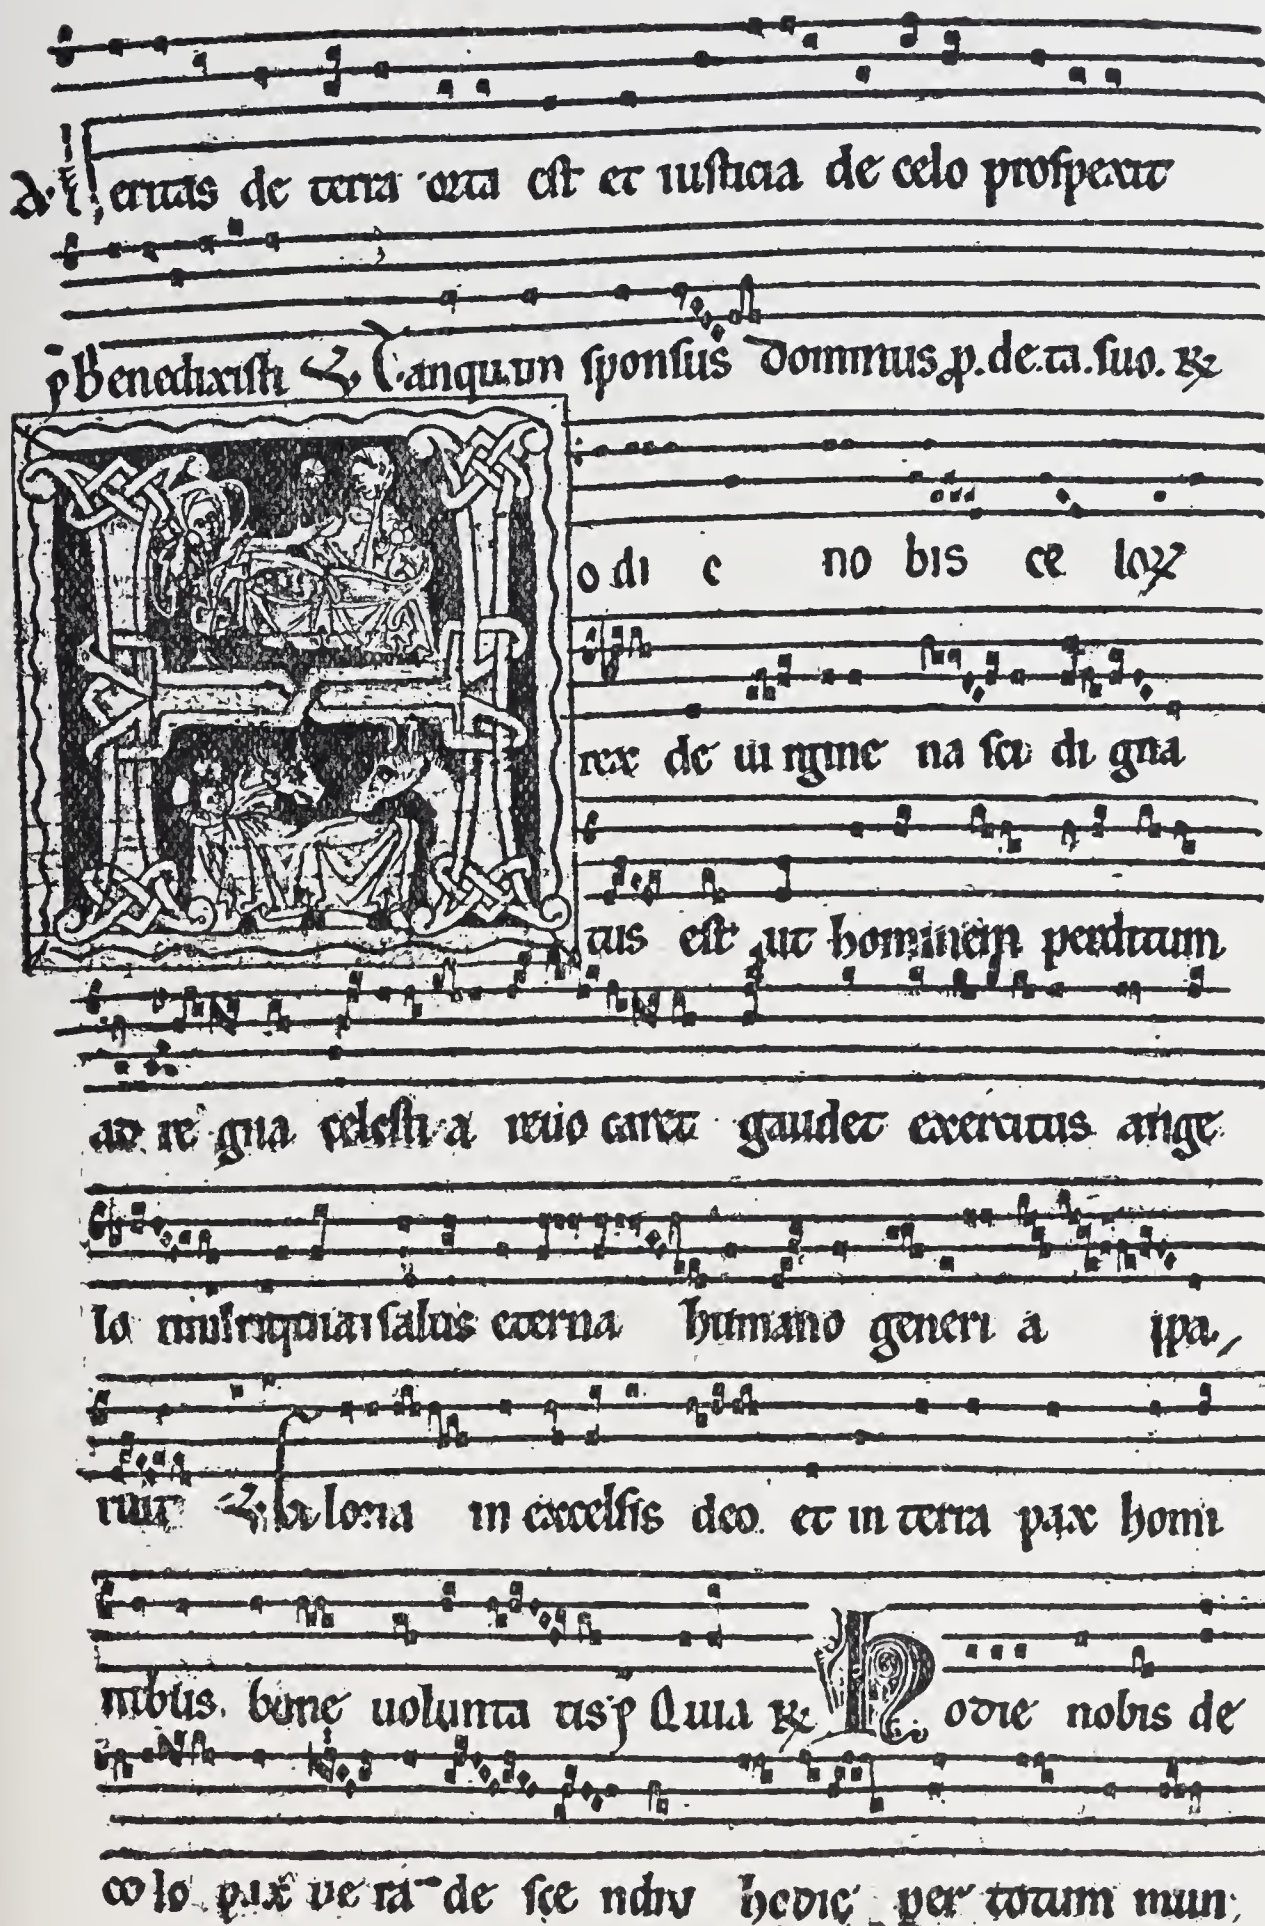 A. Veritas de terra orta est et iusticia de celo prospexit
p̄ Benedixisti Tanquam sponsus dominus p. de. ta. suo. ℟
odi e no bis ce loꝝ
rex de ui rgine na sci di gna
tus est ut hominem perditum
ad re gna celesti a reuo caret gaudet exercitus ange
lo rum quia salus eterna humano generi a ppa
ruit loria in excelsis deo et in terra pax homi
nibus. bone uolunta tis p̄ Quia ℟ Hodie nobis de
celo pax ue ra de sce ndit hodie per totum mun